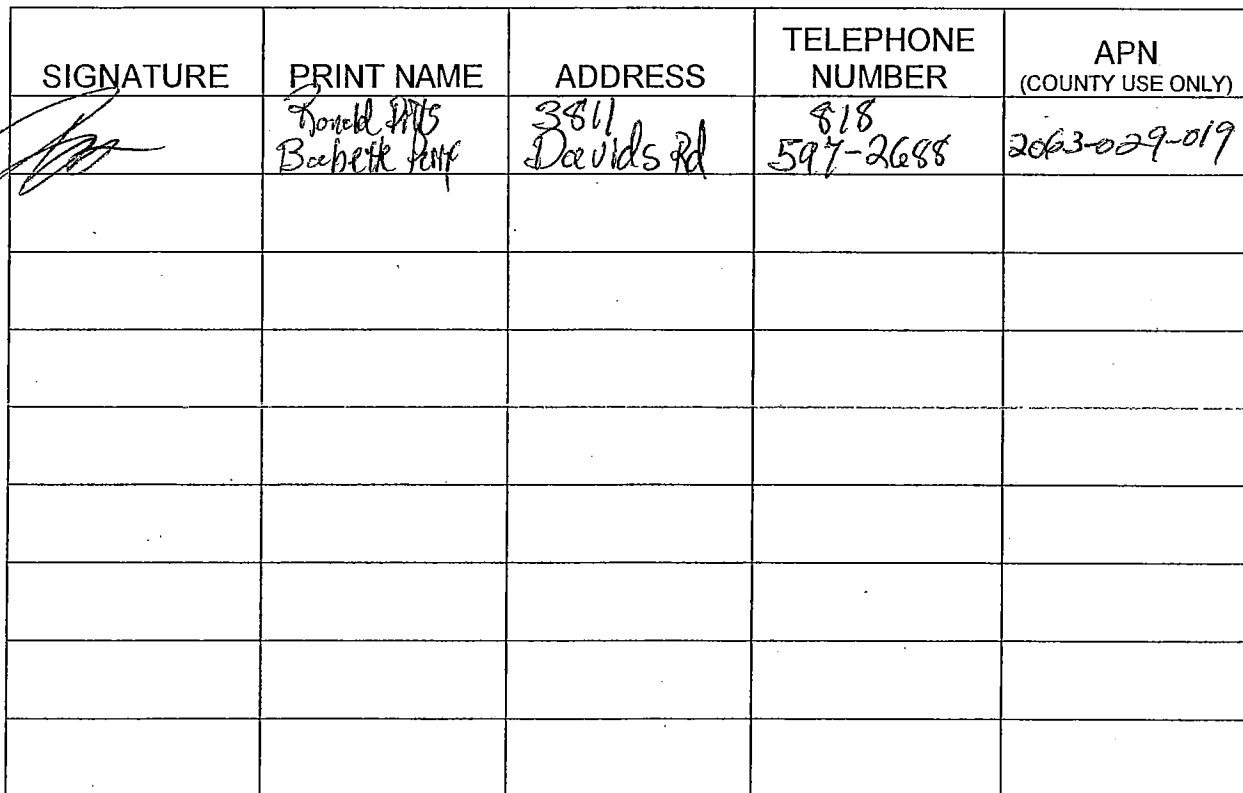 SIGNATURE
PRINT NAME
ADDRESS
TELEPHONE
NUMBER
APN
(COUNTY USE ONLY)
Ronald Pitts
Babette
3811
Davids Rd
818
597-2688
2063-029-019